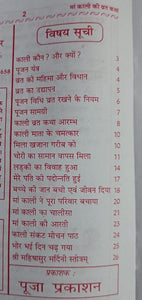 2
माँ काली की व्रत कथा
विषय सूची
काली कौन? और क्यों? 3
पूजन यंत्र 4
व्रत की महिमा और विधान 5
व्रत का उद्यापन 6
पूजन विधि व्रत रखने के नियम 6
पूजन सामग्री 7
काली व्रत कथा आरम्भ
काली माता के चमत्कार
मिला खजाना गरीब को
चोरी का सामान वापस मिला
लड़कों का विवाह हुआ
मेरे पति को पदोन्नति हुई 17
बच्चे की जान बची एवं जीवन दिया 18
मां काली ने पूरा परिवार बचाया 20
मां काली का चालीसा 21
मां काली की आरती 23
काली संकट मोचन पाठ 23
भोर भई दिन चढ़ गया 25
श्री महिषासुर मर्दिनी स्तोत्रम् 26
प्रकाशक :
पूजा प्रकाशन